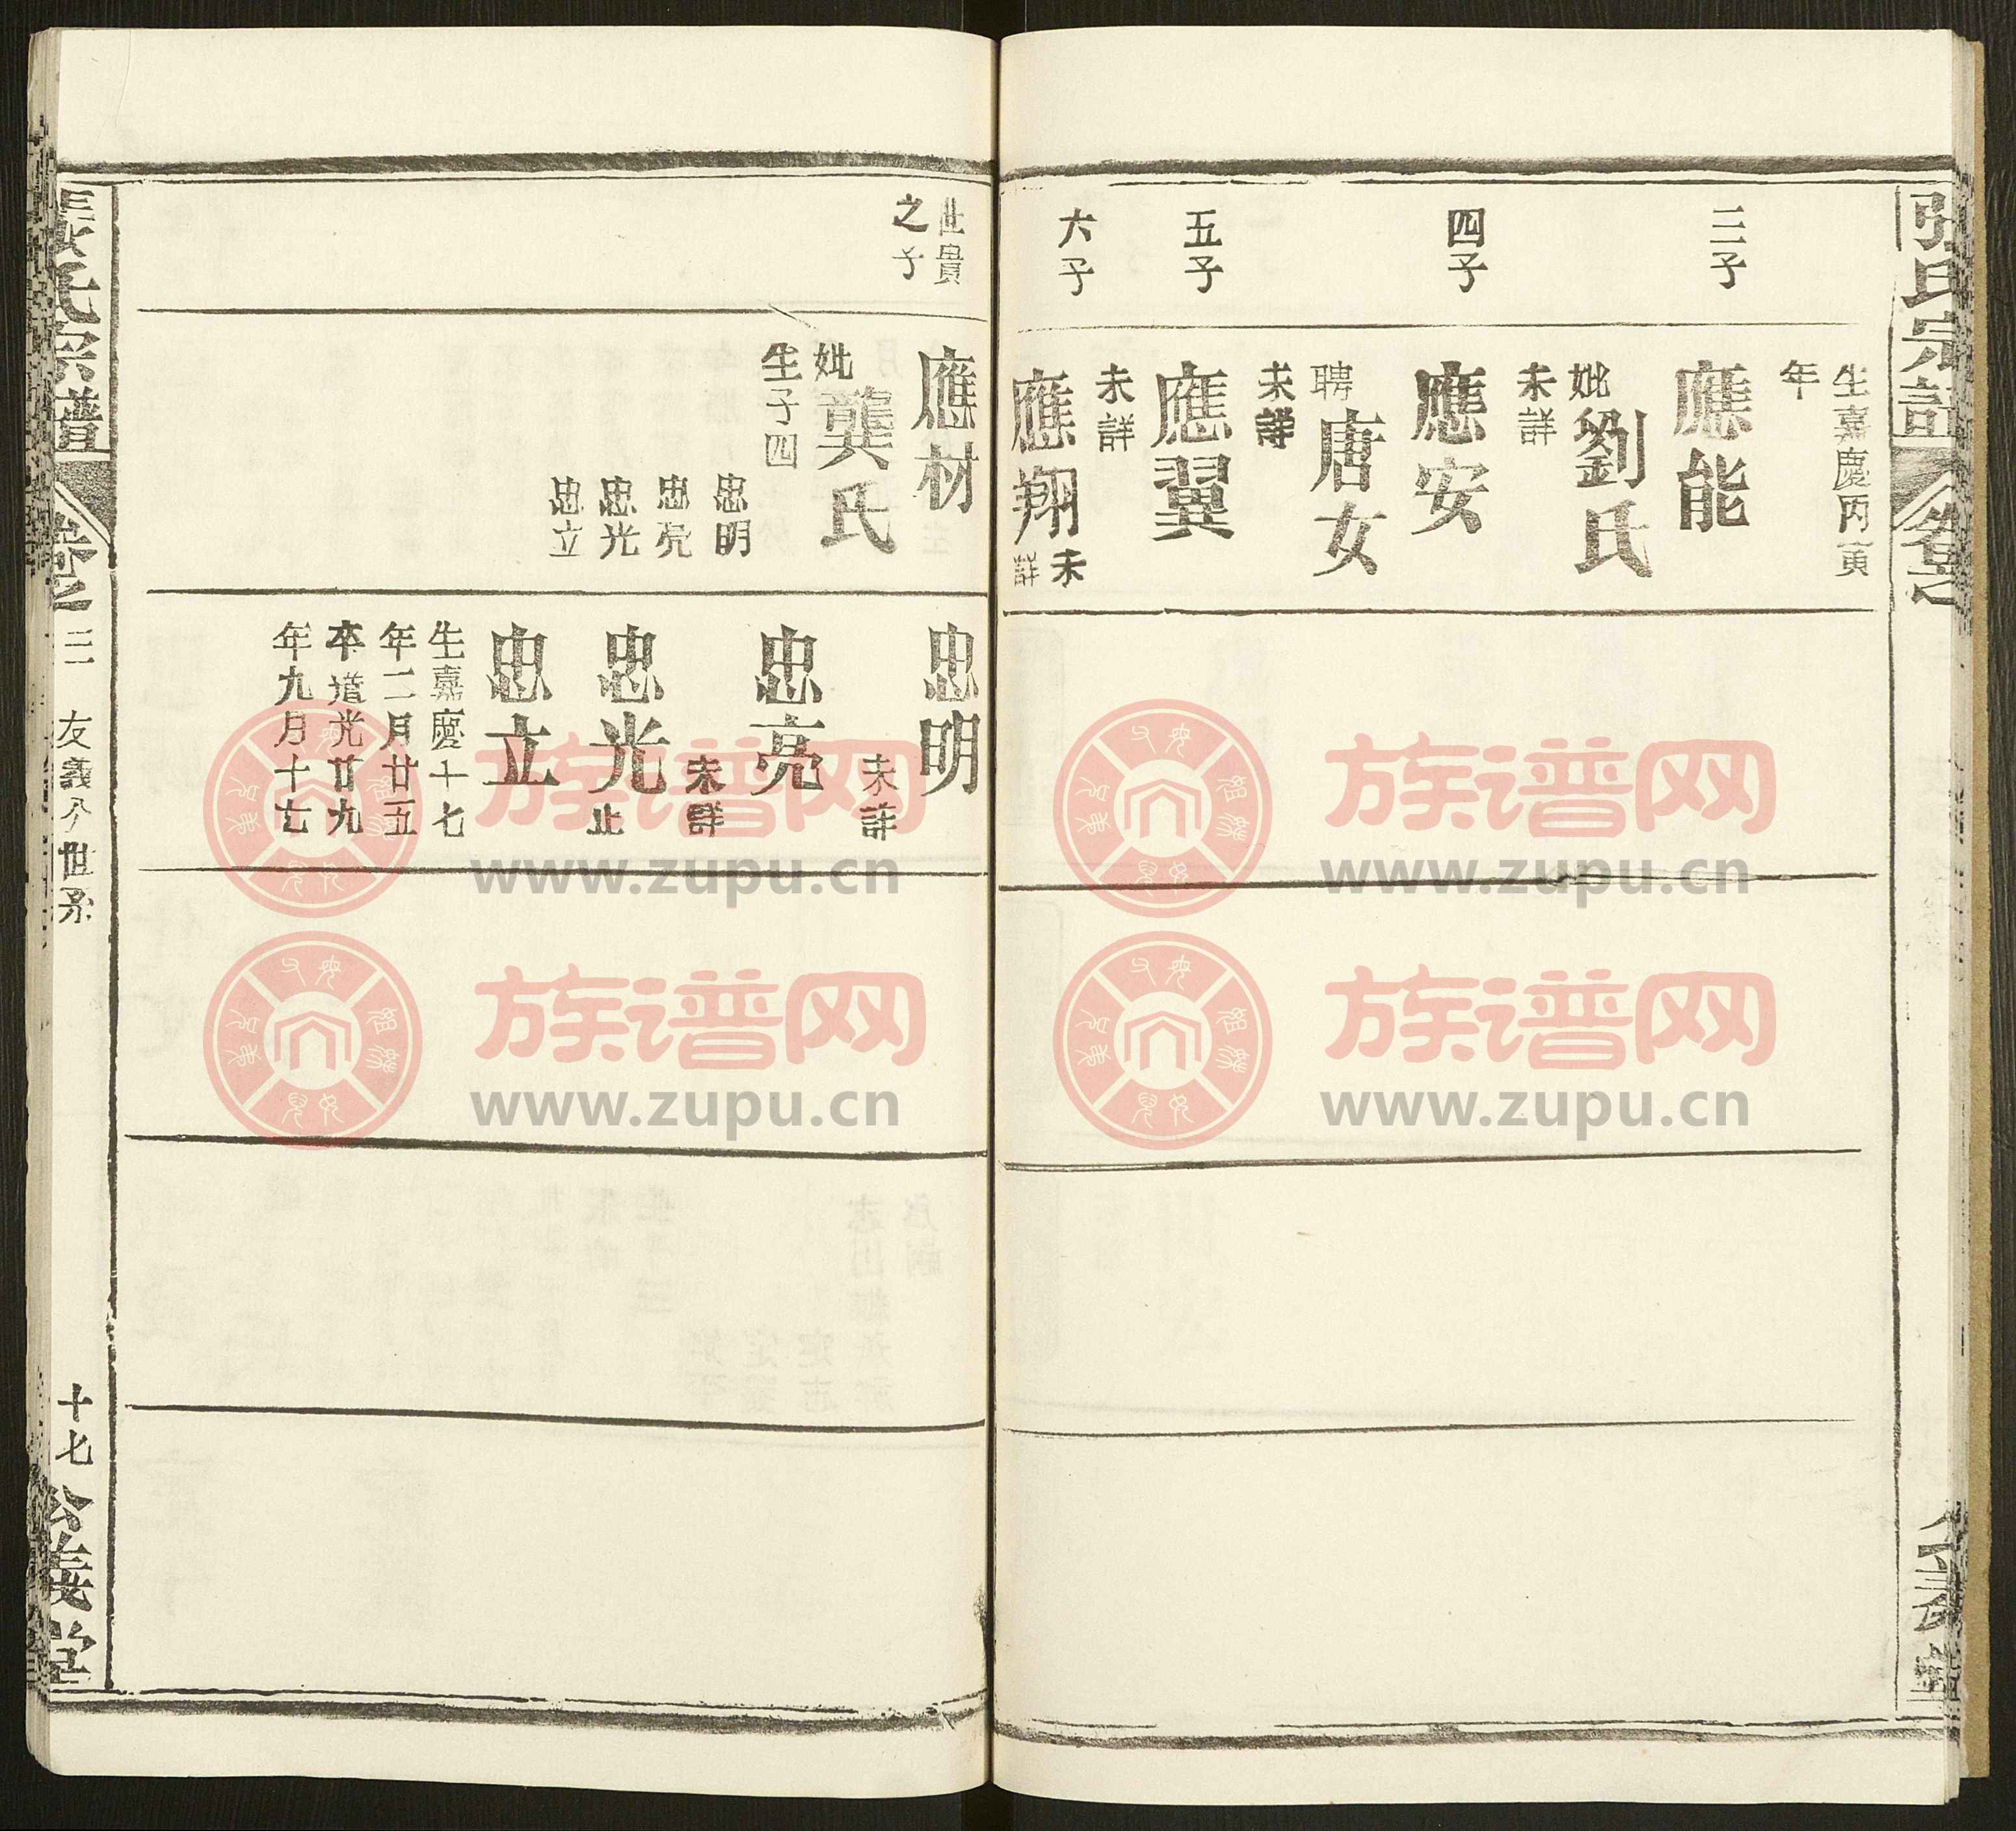 張氏宗譜
三子
四子
五子
六子
生嘉慶丙寅
年
應能
妣劉氏
未詳
應安
聘唐女
未詳
應翼
未詳
應翔
未
詳
世貴
之子
應材
妣龔氏
生子四
忠明
忠亮
忠光
忠立
忠明
未詳
忠亮
未詳
忠光止
忠立
生嘉慶十七
年二月廿五
卒道光廿九
年九月十七
張氏宗譜
卷之
三
友義分世系
十七
公義堂
族谱网
www.zupu.cn
族谱网
www.zupu.cn
族谱网
www.zupu.cn
族谱网
www.zupu.cn